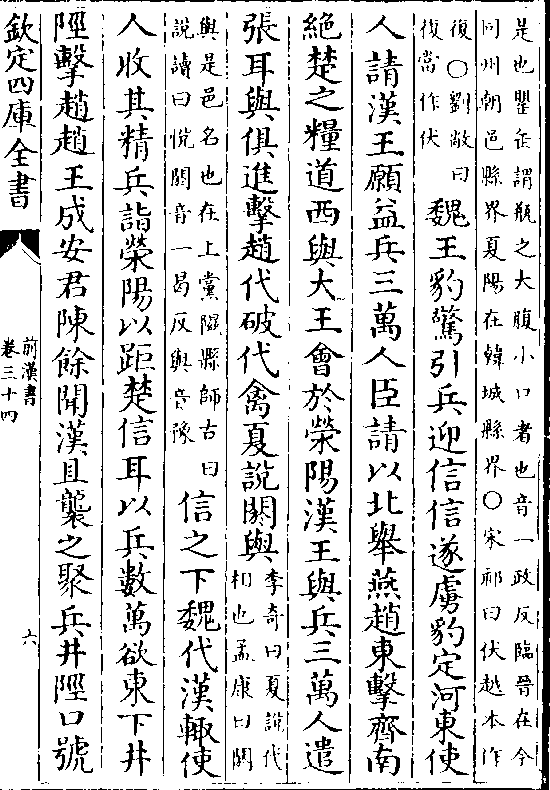 是也罌缶謂瓶之大腹小口者也音一政反臨晉在今
同州朝邑縣界夏陽在韓城縣界〇宋祁曰伏越本作
復〇劉敞曰
復當作伏
魏王豹驚引兵迎信信遂虜豹定河東使
人請漢王願益兵三萬人臣請以北舉燕趙東擊齊南
絶楚之糧道西與大王會於滎陽漢王與兵三萬人遣
張耳與俱進擊趙代破代禽夏說閼與
李奇曰夏說代
相也孟康曰閼
與是邑名也在上黨隰縣師古曰
說讀曰悅閼音一曷反與音豫
信之下魏代漢輙使
人收其精兵詣滎陽以距楚信耳以兵數萬欲東下井
陘擊趙趙王成安君陳餘聞漢且襲之聚兵井陘口號
欽定四庫全書
前漢書
卷三十四
六